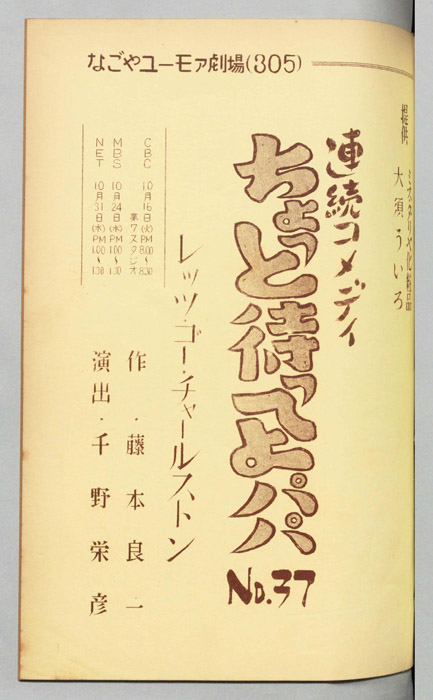 なごやユーモア劇場(305)
提供
ミスタリヤ化粧品
大須ういろ
連続コメディ
ちょっと待ってよパパ
No.37
レッツ・ゴー・チャールストン
CBC 10月16日(火)PM8.00〜8.30
第7スタジオ
MBS 10月24日(水)PM1.00〜1.30
NET 10月31日(水)PM1.00〜1.30
作・藤本良一
演出・千野栄彦